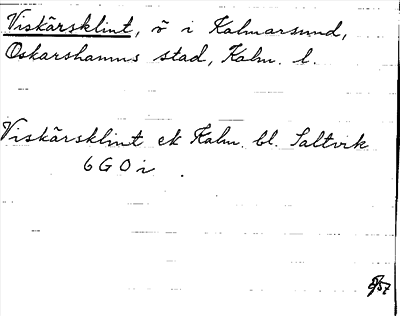 Viskärsklint, ö i Kalmarsund,
Oskarshamns stad, Kalm. l.
Viskärsklint ek Kalm. bl. Saltvik
6 G O i .